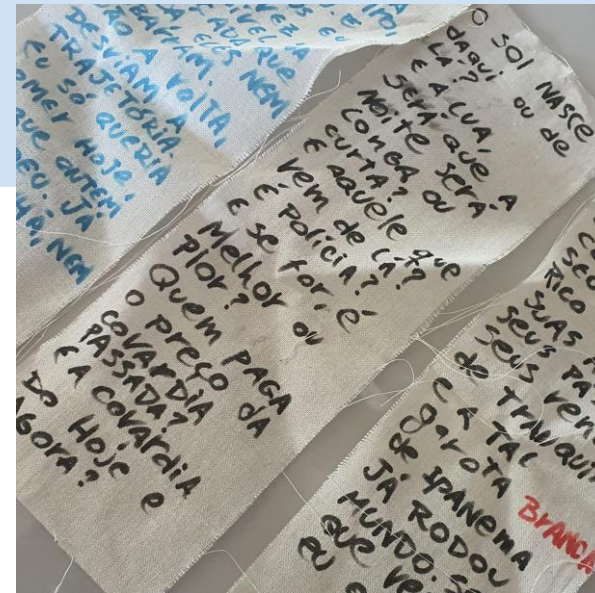 NEM
A VOLTA,
DESVIAM A
TRAJETÓRIA.
EU SÓ QUERIA
COMER HOJE,
QUE ONTEM
DEU. JÁ
NEM
O SOl NASCE
daqui ou de
LÁ?
E A LUA,
Será que A
NOITE SERÁ
LONGA OU
CURTA?
E aquele que
vem de LÁ?
É POLÍCIA?
E se for, é
Melhor ou
PIOR?
Quem PAGA
o preço DA
COVARDIA
PASSADA?
E A COVARDIA
DO HOJE e
AGORA?
RICO
SUAS
SEUS
SEUS
de
E A TAL
garota BRANCA
de IPANEMA
JÁ RODOU
MUNDO.
QUE
EU